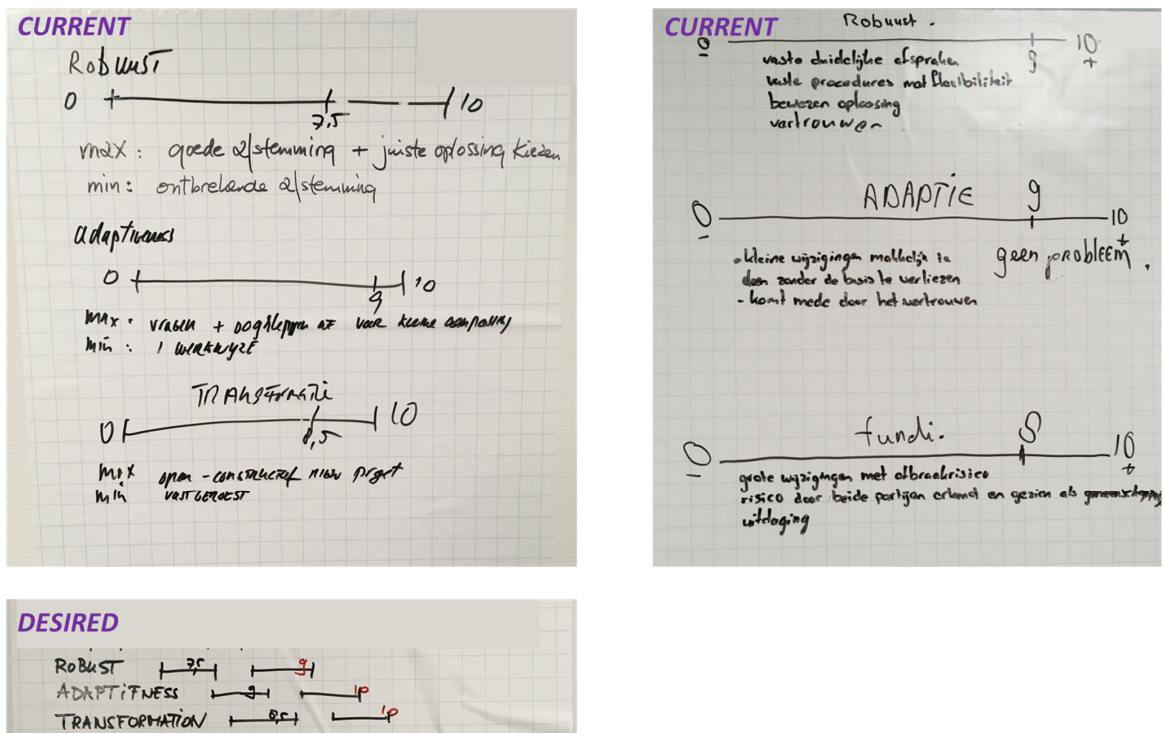 CURRENT
RobUUST
0 10
7,5
max: goede afstemming + juiste oplossing kiezen
min: ontbrekende afstemming
adaptiveness
0 10
9
max: vragen + voor kleine
min: 1 werkwijze
TRANSFORMATIE
0 10
8,5
max open - constructief
min VASTGEROEST
CURRENT
Robuust.
0 10
9 +
vaste duidelijke afspraken
vaste procedures met flexibiliteit
bewezen oplossing
vertrouwen
ADAPTIE 9
0 10
+
- kleine wijzigingen makkelijk te geen probleem.
doen zonder de basis te verliezen
- komt mede door het vertrouwen
fundi. 8
0 10
+
grote wijzigingen met afbraakrisico
risico door beide partijen erkend en gezien als
uitdaging
DESIRED
ROBUST 7,5 9
ADAPTiFNESS 9 10
TRANSFORMATiON 8,5 10